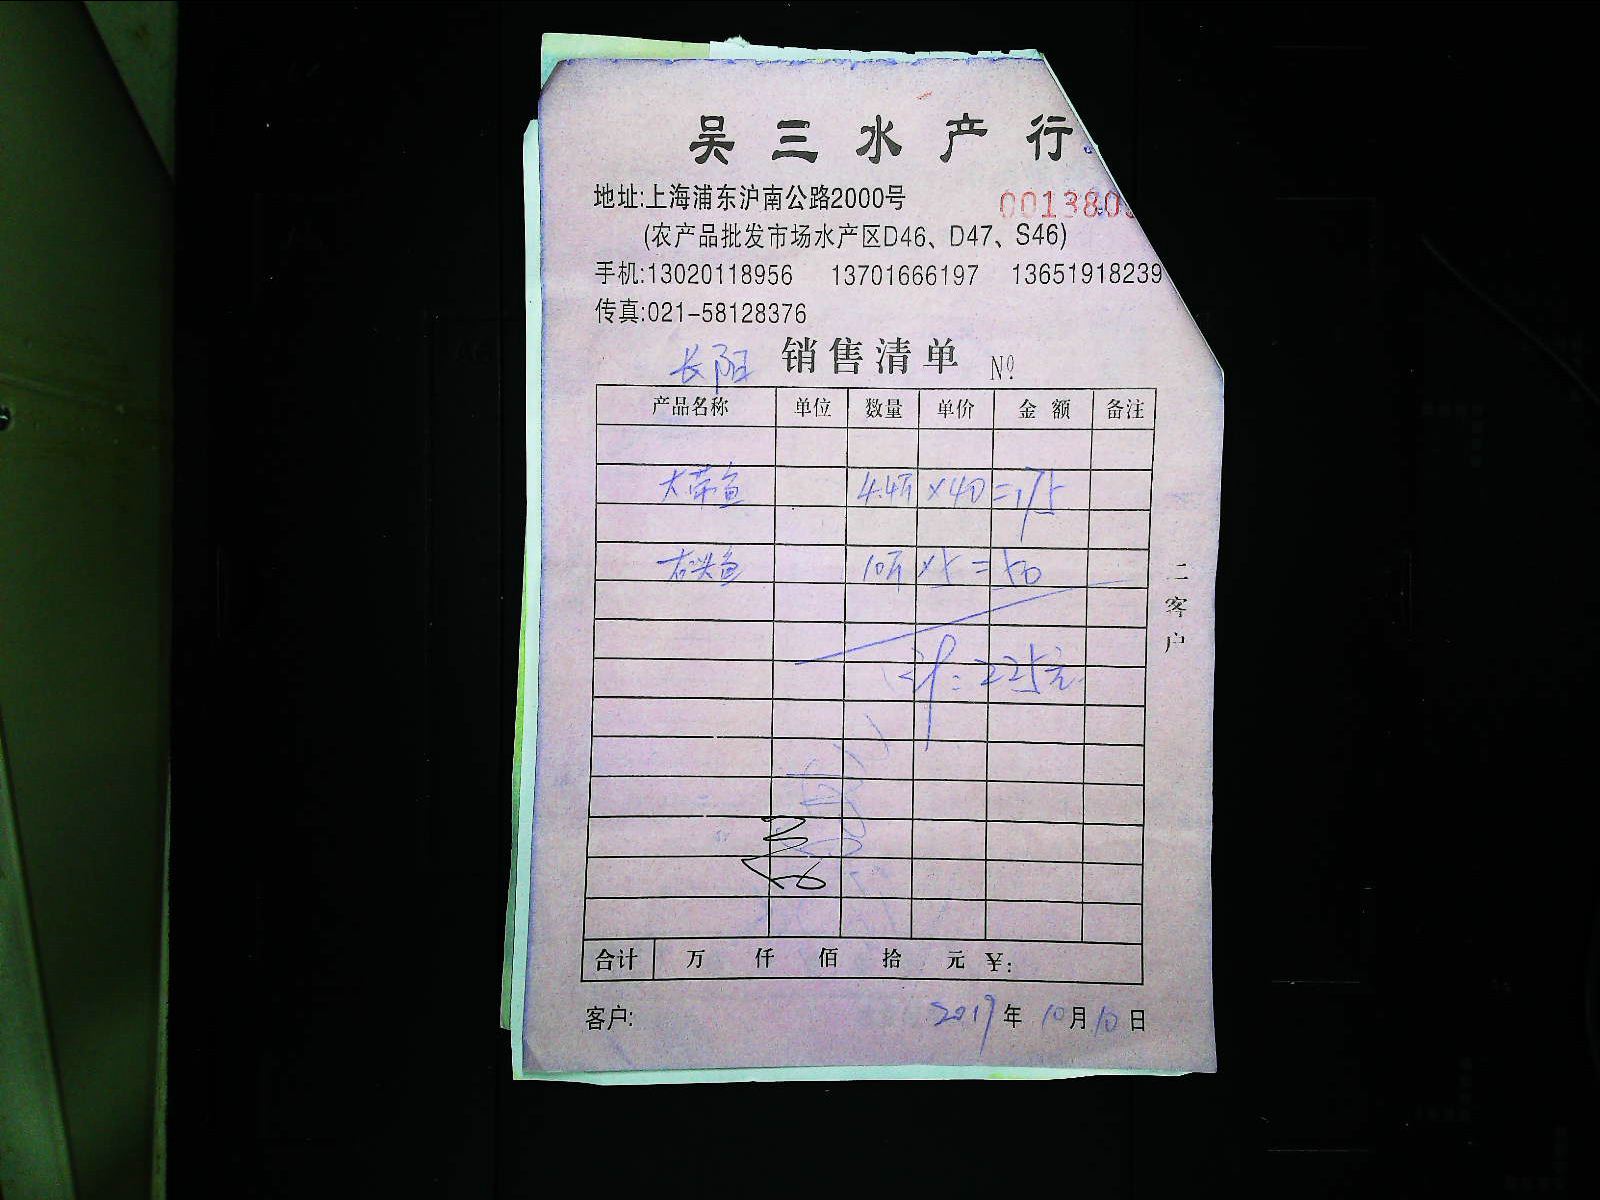 吴三水产行
地址:上海浦东沪南公路2000号
001380
(农产品批发市场水产区D46、D47、S46)
手机:13020118956 13701666197 13651918239
传真:021-58128376
长阳 销售清单 Nº
产品名称 单位 数量 单价 金额 备注
大带鱼 4.4斤 ×40 =175
石头鱼 10斤 ×5 =50
计:225元
二客户
合计 万 仟 佰 拾 元 ¥:
客户: 2019年10月10日